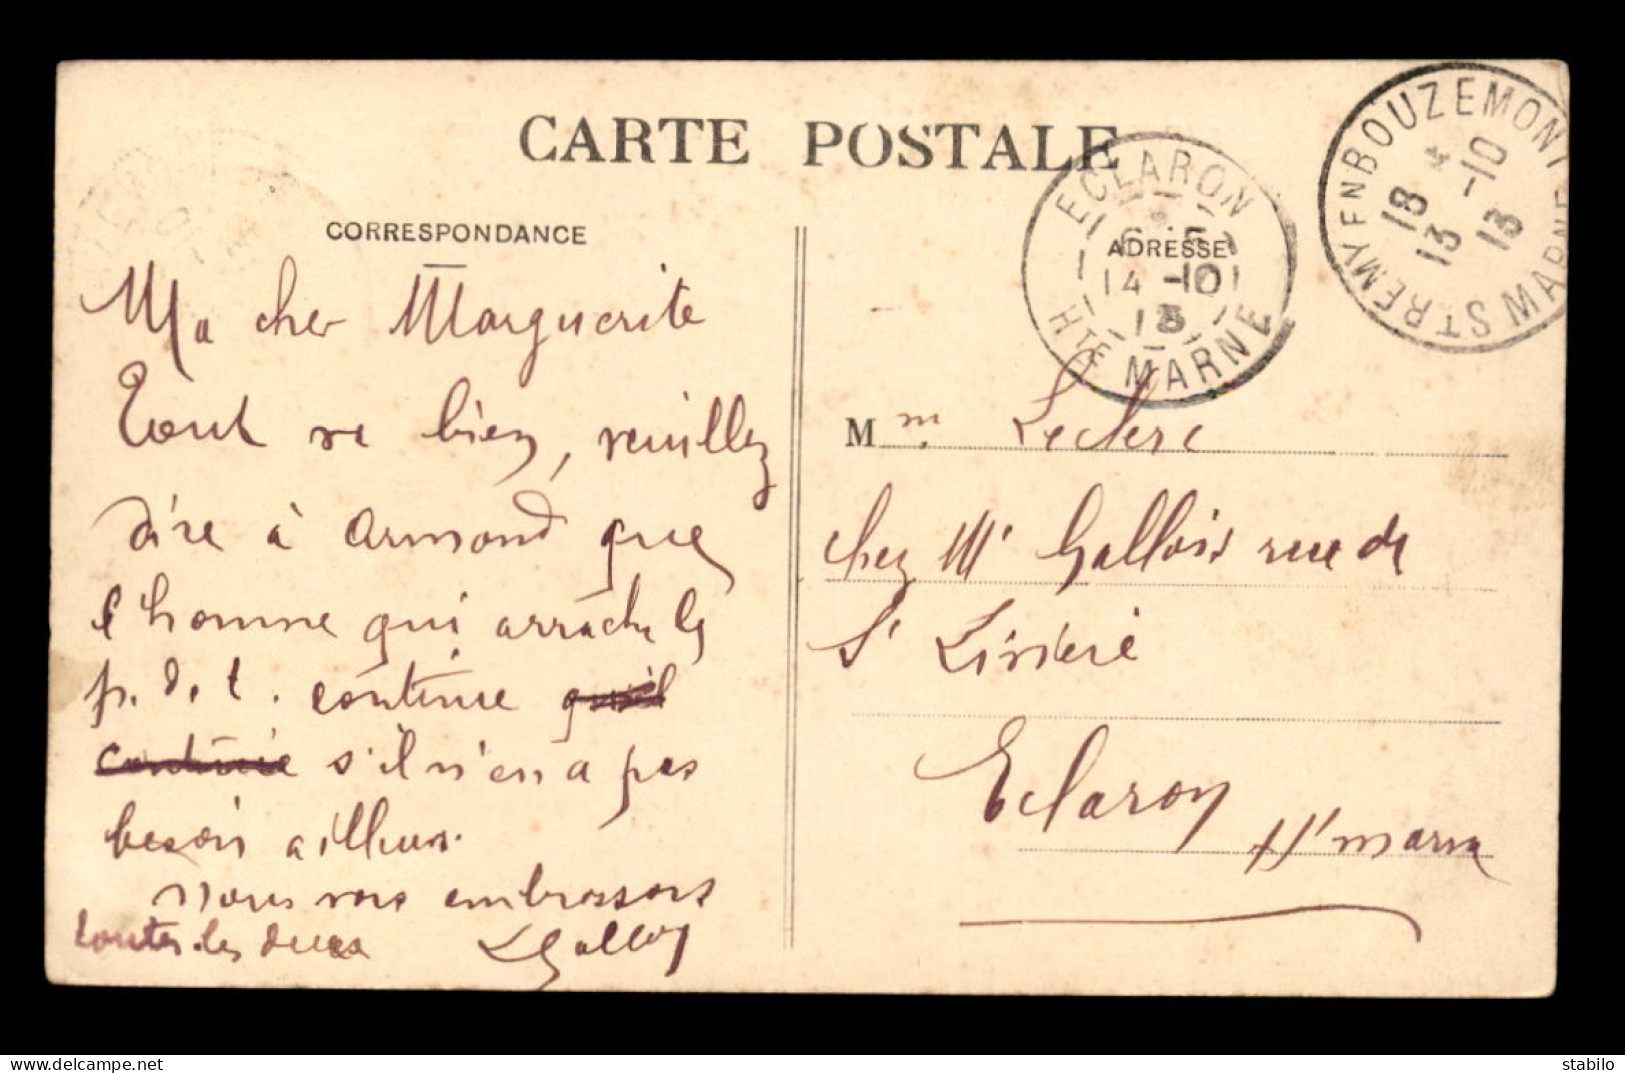 CARTE POSTALE
CORRESPONDANCE
Ma cher Marguerite
Tout va bien, veuillez
dire à Armond que
l'homme qui arrache les
p. d. t. continue qu'il
continue s'il n'en a pas
besoin ailleurs.
Nous vous embrassons
toutes les deux
ADRESSE
Mm. Leclerc
chez Mr Gallois rue de
St Liviere
Eclaron
Hte marne
ECLARON
6 15
14 -10
13
HTE MARNE
ST REMY EN BOUZEMONT
18 *
13 -10
13
MARNE
stabilo